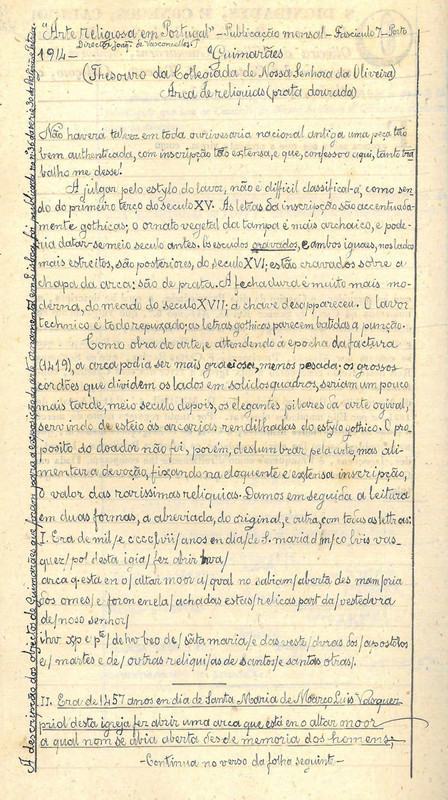 "Arte religiosa em Portugal" - Publicação mensal - Fasciculo 7 - Porto
Director Joaq. de Vasconcellos
1914 - Guimarães
(Thesouro da Collegiada de Nossa Senhora da Oliveira)
Arca de reliquias (prata dourada)
Não haverá talvez em toda ourivesaria nacional antiga uma peça tão
bem authenticada, com inscripção tão extensa, e que, confesso-o aqui, tanto tra
balho me desse.
A julgar pelo estylo do lavor, não é difficil classifical-a, como sen
do do primeiro terço do seculo XV. As letras da inscripção são accentuada-
mente gothicas; o ornato vegetal da tampa é mais archaico, e pode-
ria datar-se meio seculo antes. Os escudos gravados, e ambos iguaes, nos lados
mais estreitos, são posteriores, do seculo XVI; estão cravados sobre a
chapa da arca: são de prata. A fechadura é muito mais mo-
derna, do meado do seculo XVII; a chave desappareceu. O lavor
technico é todo repuxado; as letras gothicas parecem batidas a punção.
Como obra de arte, e attendendo á epocha da factura
(1419), a arca podia ser mais graciosa, menos pesada; os grossos
cordões que dividem os lados em solidos quadros, seriam um pouco
mais tarde, meio seculo depois, os elegantes pilares da arte ogival,
servindo de esteio ás arcarias rendilhadas do estylo gothico. O pro
posito do doador não foi, porém, deslumbrar pela arte, mas ali-
mentar a devoção, fixando na eloquente e extensa inscripção,
o valor das rarissimas reliquias. Damos em seguida a leitura
em duas formas, a abreviada, do original, e outra, com todas as lettras:
I. Era de mil/e cccclvii/anos en dia/de S. maria d m/co lois vas-
quez/pol desta igia/fez abrir hva/
arca q esta en o/altar moor a/qual no sabiam/aberta des mam/oria
dos omes/e foron en ela/achadas estas/relicas part da/vestedvra
de/noso senhor/
ihv xp e /de hv beo de/sāta maria/e das veste/duras dos/apostolos
e/martes e de/outras reliqui/as de santos/e santas obras/.
II. Era de 1457 anos en dia de Santa Maria de Março Luis Vasquez
priol desta igreja fez abrir uma arca que está en o altar moor
a qual nom se abia aberta des de memoria dos homens;
- Continua no verso da folha seguint -
A descripção dos objectos de Guimarães que foram para a exposição da arte ornamental em Lisboa foi publicada no nº 36 da serie 30 de